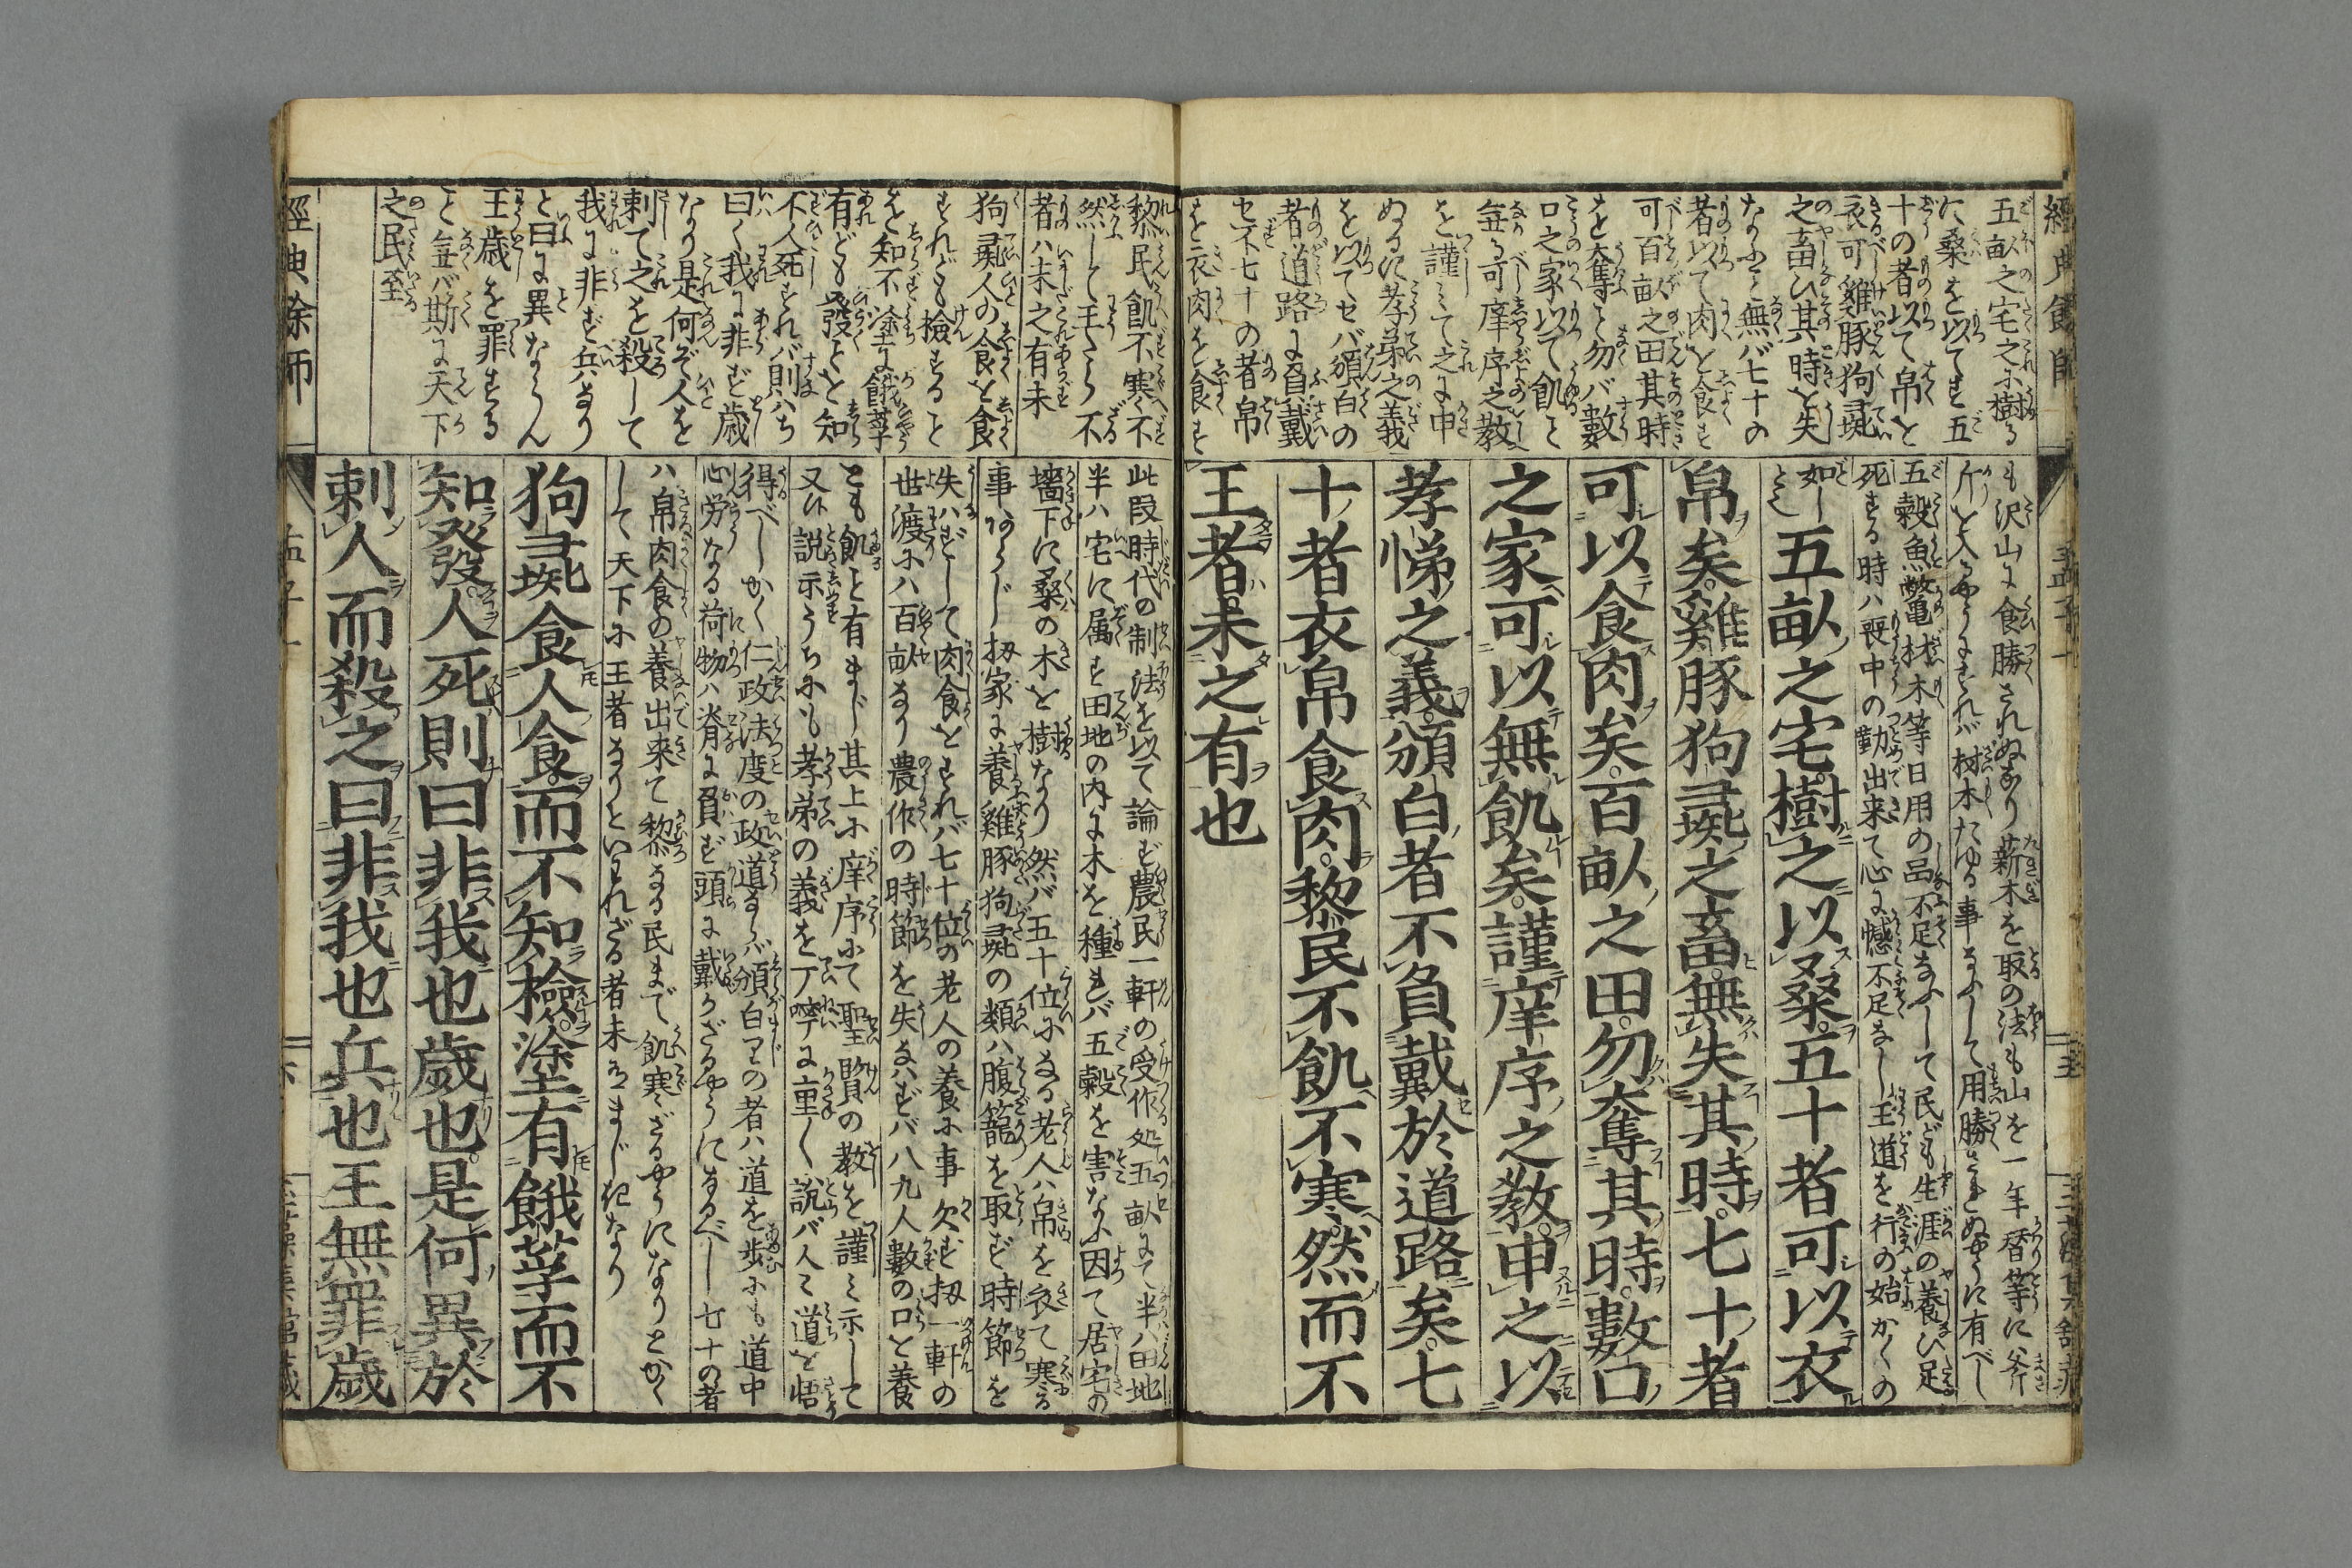 經典餘師
五畝之宅之に樹る
に桑を以てす五
十の者以て帛を
衣可雞豚狗彘
之畜ひ其時を失
なふこと無バ七十の
者以て肉を食す
可百畝之田其時
を奪こと勿バ數
口之家以て飢こと
無る可庠序之教
を謹ミて之に申
ぬるに孝弟之義
を以てセバ頒白の
者道路に負戴
セ不七十の者帛
を衣肉を食す
も沢山に食勝されぬなり薪木を取の法も山を一年暦等に斧
斤を入るやうにすれバ材木たゆる事なふして用勝されぬやうに有べし
五穀魚鼈材木等日用の品不足なふして民ども生涯の養ひ足
死する時ハ喪中の勤出来て心に憾不足なし王道を行の始かくの
如しとぞ
五畝之宅樹之以桑五十者可以衣
帛矣雞豚狗彘之畜無失其時七十者
可以食肉矣百畝之田勿奪其時數口
之家可以無飢矣謹庠序之教申之以
孝悌之義頒白者不負戴於道路矣七
十者衣帛食肉黎民不飢不寒然而不
王者未之有也
黎民飢不寒不
然して王たら不
者ハ未之有未
狗彘人の食を食
すれども檢すること
を知不塗に餓莩
有ども發ことを知
不人死すれバ則ハち
曰く我に非ず歳
なり是何ぞ人を
刺て之を殺して
我に非ず兵なり
と曰に異ならん
王歳を罪する
こと無バ斯に天下
之民至
此段時代の制法を以て論ず農民一軒の受作処五畝にて半ハ田地
半ハ宅に属す田地の内に木を種れバ五穀を害なふ因て居宅の
墻下に桑の木を樹なり然バ五十位になる老人ハ帛を衣て寒る
事あらじ扨家に養雞豚狗彘の類ハ腹籠を取ず時節を
失ハずして肉食とすれバ七十位の老人の養に事欠ず扨一軒の
世渡にハ百畝なり農作の時節を失なハずバ八九人數の口を養
とも飢こと有まじ其上に庠序にて聖賢の教を謹ミ示して
又ひ説示うちにも孝弟の義を丁嚀に重く説バ人ミ道を悟
得べしかく仁政法度の政道ならバ頒白まじの者ハ道を歩にも道中
心労なる荷物ハ脊に負ず頭に戴かざるやうになるべし七十の者
ハ帛肉食の養出来て黎なる民まで飢寒ざるやうになりとかく
して天下に王者なりといはれざる者未有まじきなり
狗彘食人食而不知檢塗有餓莩而不
知發人死則曰非我也歲也是何異於
刺人而殺之曰非我也兵也王無罪歲
經典餘師